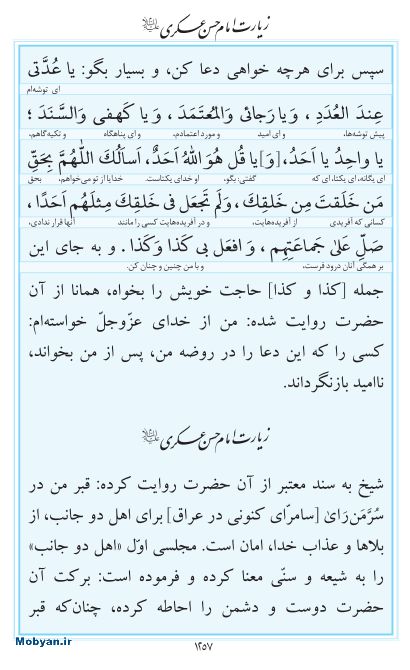 زیارت امام حسن عسکری علیه‌السلام
سپس برای هرچه خواهی دعا کن، و بسیار بگو: یا عُدَّتی
ای توشه‌ام
عِندَ العُدَدِ ، وَ یا رَجائی وَالمُعتَمَدَ ، وَ یا کَهفی وَالسَّنَدَ ؛
پیش توشه‌ها، و ای امید و مورد اعتمادم، و ای پناهگاه و تکیه‌گاهم،
یا واحِدُ یا اَحَدُ، [وَ] یا قُل هُوَ اللّٰهُ اَحَدٌ، اَسأَلُکَ اللّٰهُمَّ بِحَقِّ
ای یگانه، ای یکتا، ای که گفتی: بگو، او خدای یکتاست. خدایا از تو می‌خواهم، بحق
مَن خَلَقتَ مِن خَلقِکَ ، وَلَم تَجعَل فی خَلقِکَ مِثلَهُم اَحَدًا ،
کسانی که آفریدی از آفریده‌هایت، و در آفریده‌هایت کسی را مانند آنها قرار ندادی،
صَلِّ عَلیٰ جَماعَتِهِم ، وَ افعَل بی کَذا وَکَذا . و به جای این
بر همگی آنان درود فرست، و با من چنین و چنان کن.
جمله [کذا و کذا] حاجت خویش را بخواه، همانا از آن
حضرت روایت شده: من از خدای عزّوجلّ خواسته‌ام:
کسی را که این دعا را در روضه من، پس از من بخواند،
ناامید بازنگرداند.
زیارت امام حسن عسکری علیه‌السلام
شیخ به سند معتبر از آن حضرت روایت کرده: قبر من در
سُرَّمَن‌رَایٰ [سامرّای کنونی در عراق] برای اهل دو جانب، از
بلاها و عذاب خدا، امان است. مجلسی اوّل «اهل دو جانب»
را به شیعه و سنّی معنا کرده و فرموده است: برکت آن
حضرت دوست و دشمن را احاطه کرده، چنان‌که قبر
Mobyan.ir
۱۲۵۷